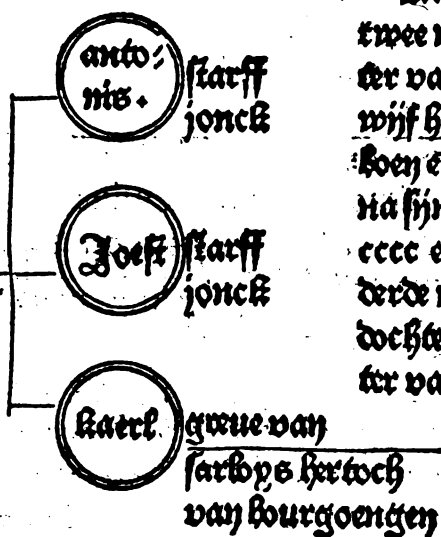 anto⸗
nis.
starff
jonck
Joest
starff
jonck
kaerl
greue van
sarloys hertoch
van bourgoengen
twee
ter va
wijf h
koen e
na sijn
cccc e
derde
dochte
ter va